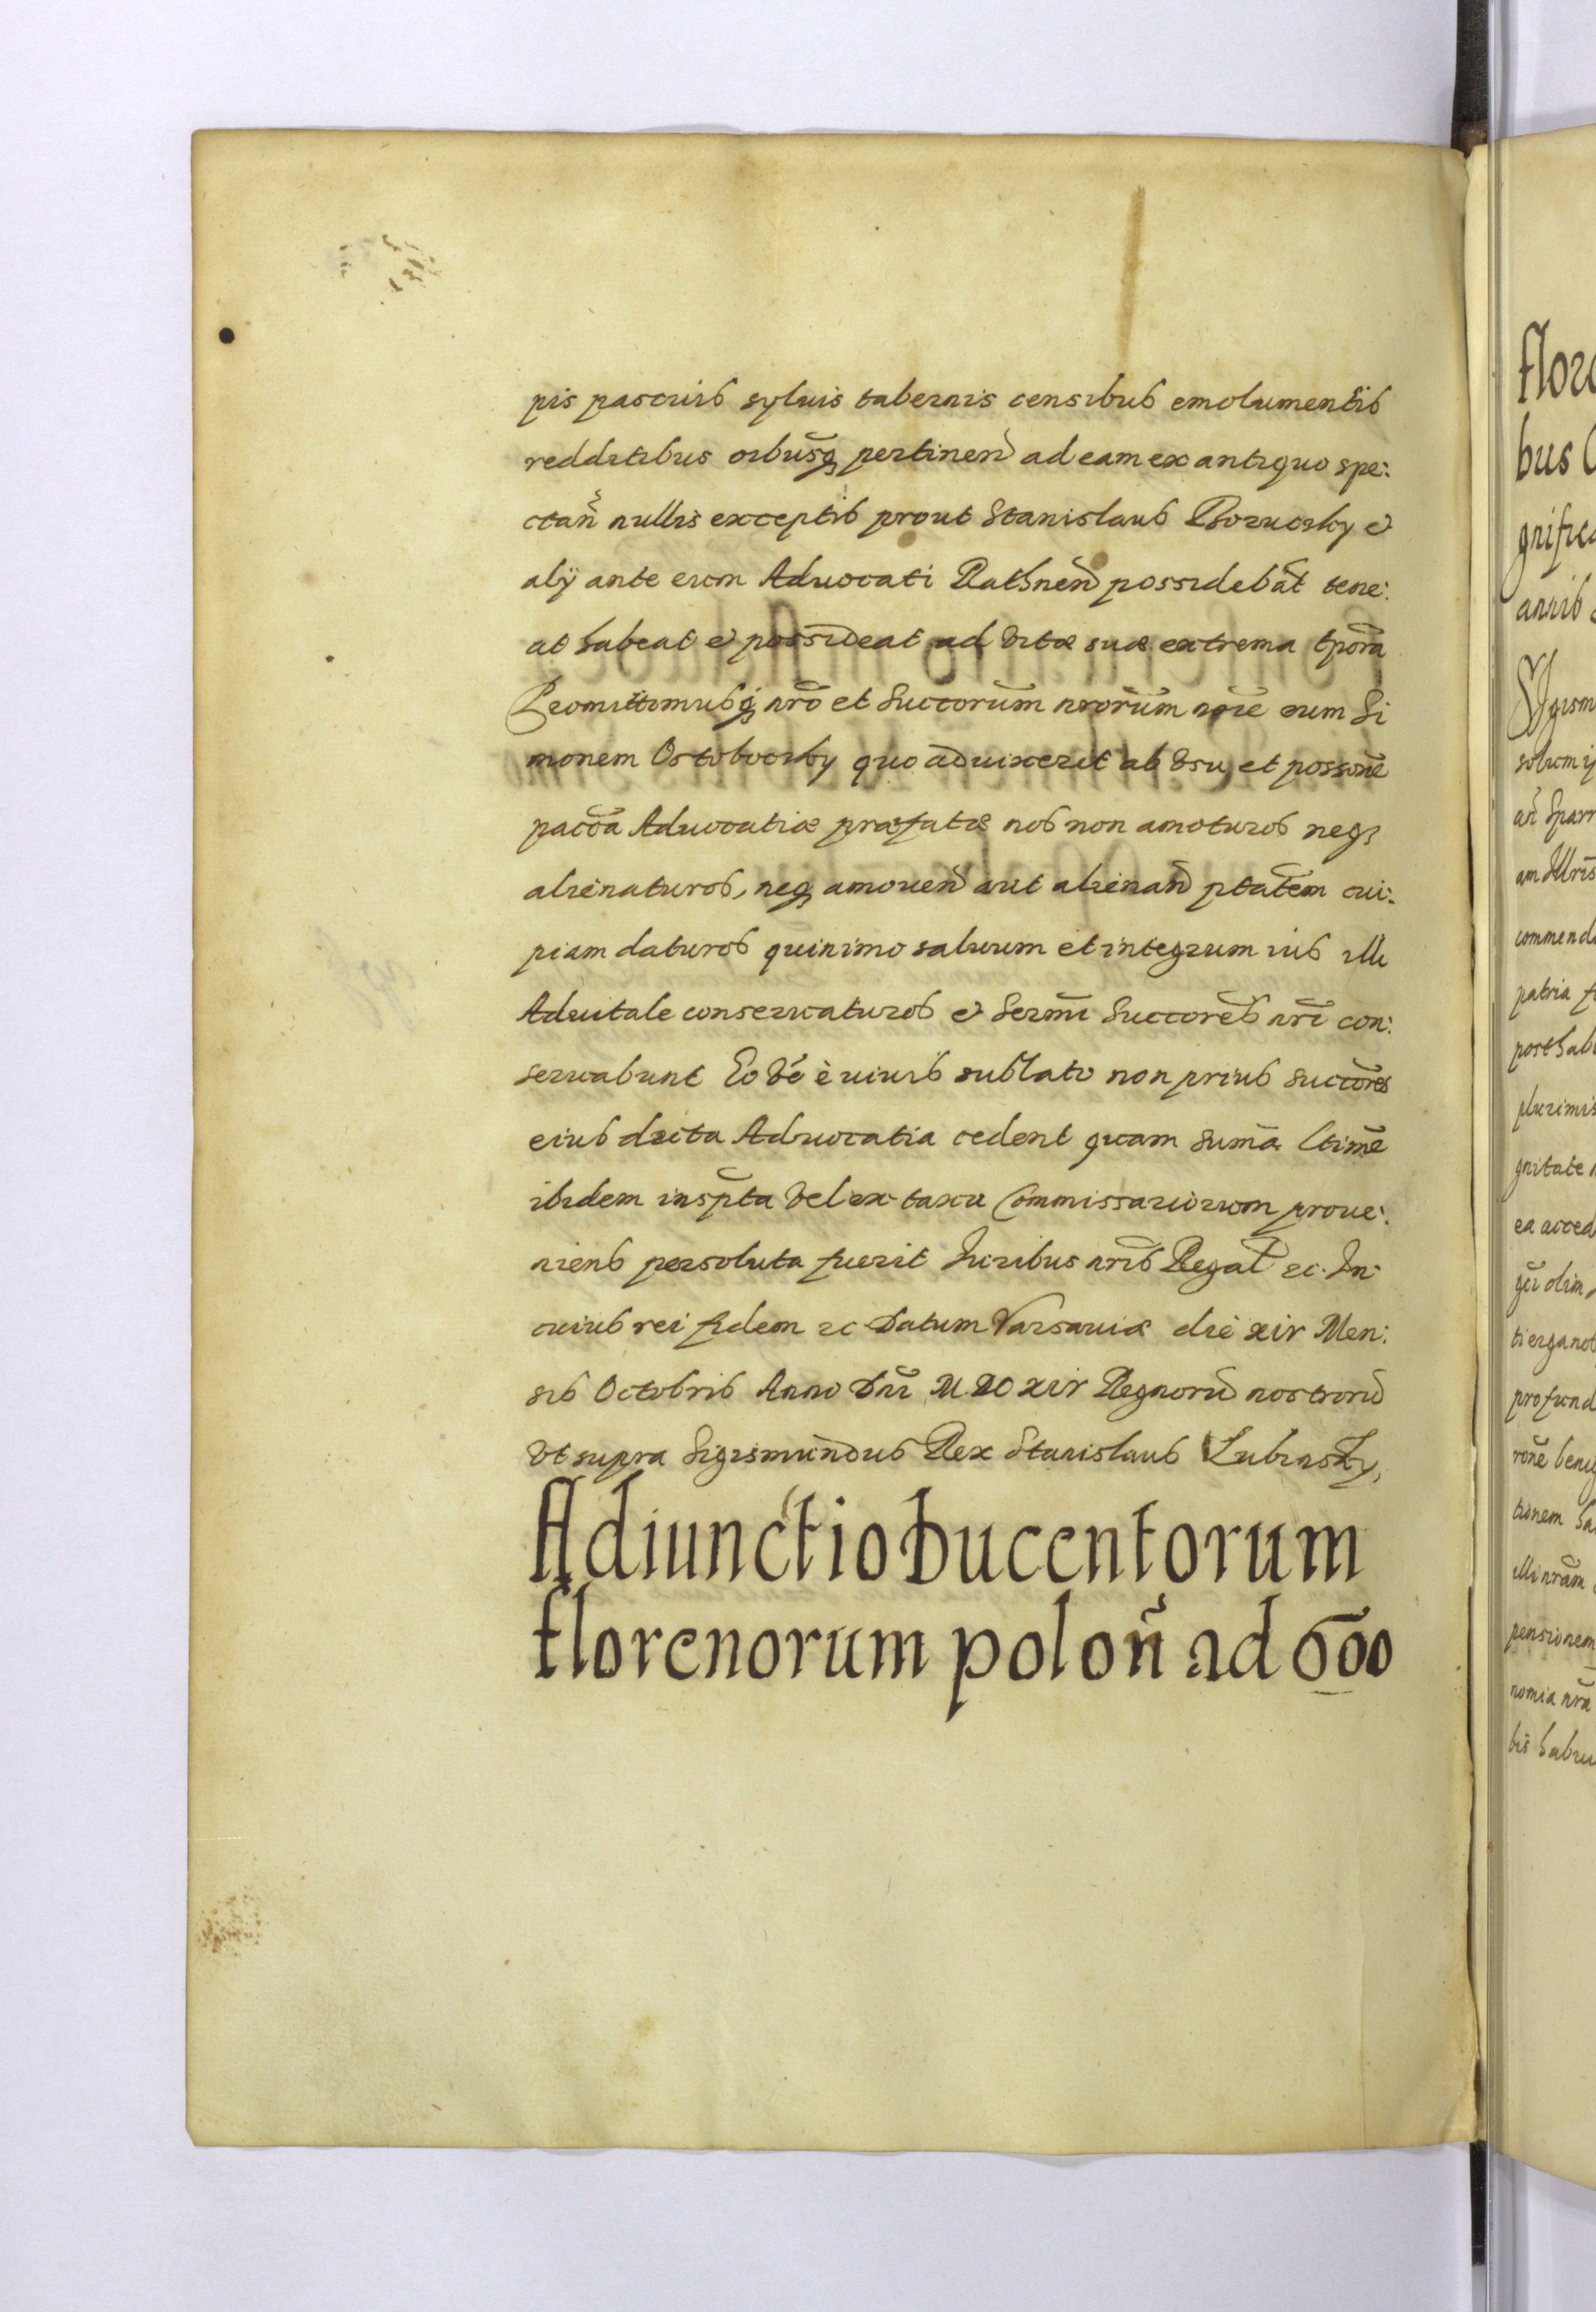 pis pascuis syluis tabernis censibus emolumentis
redditibus oibusq pertinen ad eam ex antiquo spe:
ctan nullis exceptis prout Stanislaus et
alij ante eum Aduocati Rathnen possidebat tene:
at habeat et possideat ad vitæ suæ extrema tpora
Promittimusq nro et Succorum nrorum noie eum Si
monem quoaduixerit ab vsu et possone
pacca Aduocatiæ præfatæ nos non amoturos neq
alienaturos, neq amouen aut alienan ptatem cui:
piam daturos quinimo saluum et integrum ius illi
Aduitale conseruaturos et Sermi Succores nri con:
seruabunt Eo vo è uiuis sublato non prius succores
eius dicta Aduocatia cedent quam suma ltime
ibidem inspta vel ex taxa Commissariorum proue:
niens persoluta fuerit Iuribus nris Regal etc. In
cuius rei fidem etc Datum Varsauiæ die xiv Men:
sis Octobris Anno Dni M.DC xiv Regnoru nostroru
vt supra Sigismundus Rex Stanislaus Lubinsky,
Adiunctio Ducentorum
florenorum polon ad 600
floro
bus
gnifica
annis
Sigism
solum
an Sparr
am Illris
commenda
patria
posthab
plurimis
gnitate
ea acced
qui olim
ti erga nos
profund
rone beni
tionem ha
illi nram
pensionem
nomia nra
bis habu